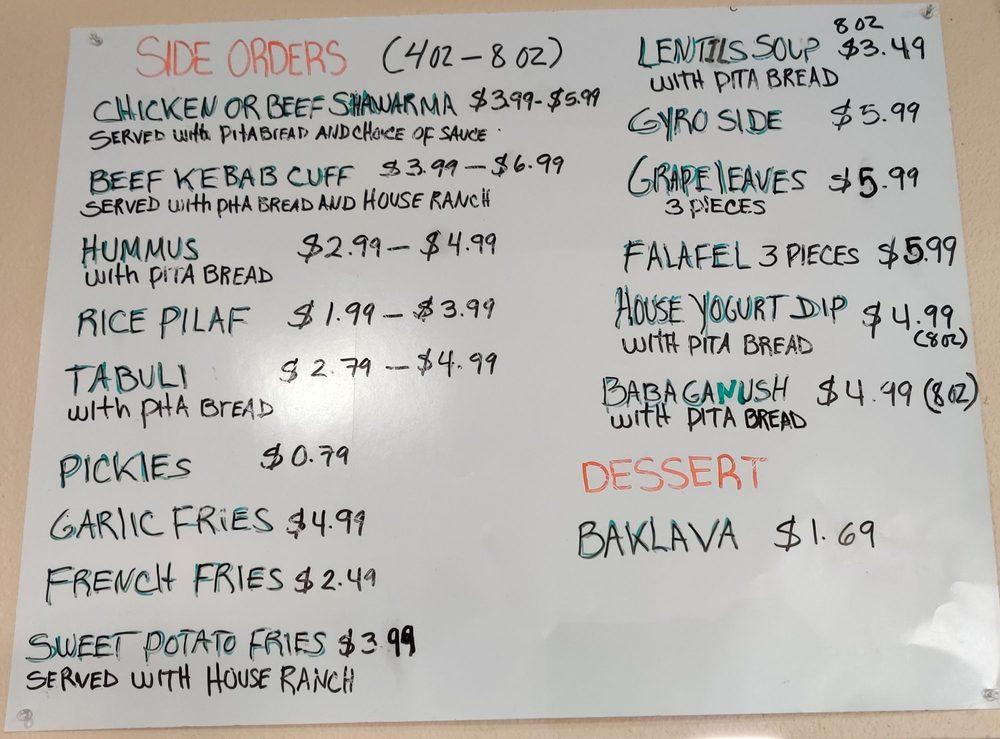 SIDE ORDERS (4OZ-8OZ)
CHICKEN OR BEEF SHAWARMA $3.99-$5.99
SERVED with PITA BrEAD AND CHOICE OF SAUCE
BEEF KEBAB CUFF $3.99-$6.99
SERVED with PITA BREAD AND HOUSE RANCH
HUMMUS $2.99-$4.99
with PITA BREAD
RICE PILAF $1.99-$3.99
TABULI $2.79-$4.99
with PITA BrEAD
PICKlES $0.79
GARlIC FRiES $4.99
FRENCH FRIES $2.49
SWEET POTATO FRIES $3.99
SERVED WITH HOUSE RANCH
8 OZ
LENTILS SOUP $3.49
WITH PITA BREAD
GYRO SIDE $5.99
GRAPE lEAVES $5.99
3 PIECES
FALAFEL 3 PIECES $5.99
HOUSE YOGURT DIP $4.99
WITH PITA BREAD (8OZ)
BABAGANUSH $4.99 (8OZ)
WITH PITA BREAD
DESSERT
BAKLAVA $1.69